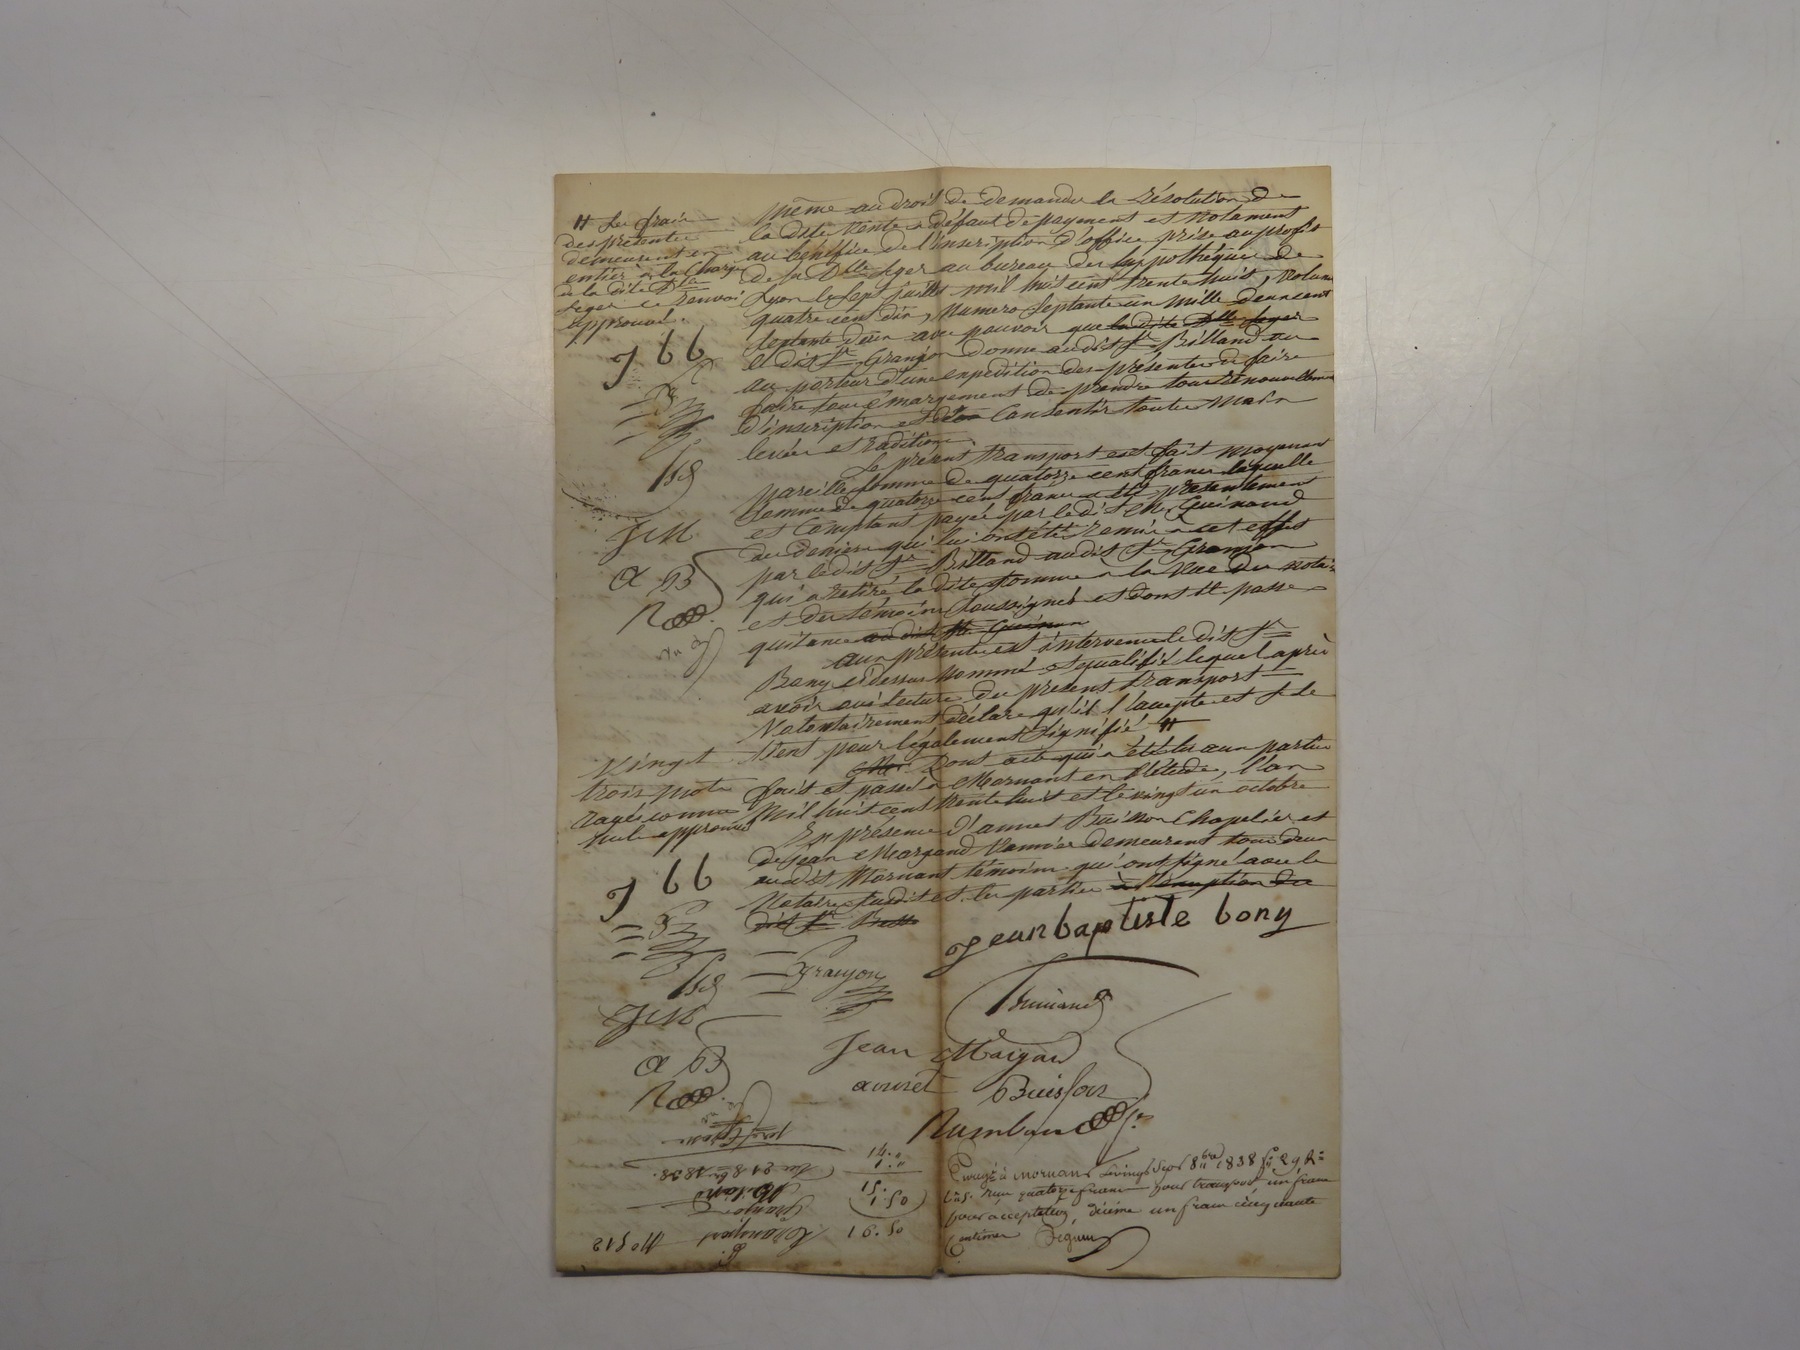 même au droit de demander la résolution de
la dite vente à défaut de payement et notament
au bénéfice de l'inscription d'office prise au profit
de la Dlle Seger au bureau des hypothèques de
Lyon le sept juillet mil huit cent trente huit, volume
quatre cent dix, Numero septante un mille deux cent
septante deux avec pouvoir que la dite Dlle Seger
le dit Sr Granjon donne audit Sr Billand ou
au porteur d'une expedition des présentes de faire
faire tous émargement de prendre tous renouvellemens
d'inscription et d'en Consentir toutes main
levées et radiations.
Le présent transport est fait moyennant
pareille somme de quatorze cent francs laquelle
somme de quatorze cent francs a été présentement
et Comptant payée par le dit Me Guinand
des deniers qui lui ont été remis à cet effet
par le dit Sr Billand audit Sr Granjon
qui a retiré la dite somme à la vue du notaire
et des témoins soussignés et dont il passe
quitance au dit Me Guinan
Aux présentes est intervenu le dit Sr
Bony ci dessus nommé et qualifié lequel après
avoir oui lecture du présent transport
Volontairement déclare qu'il l'accepte et se le
tient pour légalement signifié #
Dont acte qui a été lu aux parties
fait et passé à Mornant en l'étude, l'an
Mil huit cent trente huit et le vingt un octobre
En présence d'annet Buisson Chapelier et
de Jean Margand Vannier demeurant tous deux
audit Mornant témoins qui ont signé avec le
Notaire susdit et les parties à l'exception du
dit Sr
# Les frais
des présentes
demeurent en
entier à la charge
de la dite Dlle
Seger ce renvoi
approuvé.
J b b
JM
a B
Vingt
trois mots
rayés comme
nuls approuvés
J b b
JM
a B
jean baptiste bony
Granjon
Guinand
Jean Margand
annet Buisson
Enregé à Mornant le vingt sept 8bre 1838 fo 29 Ro
Cas. reçu quatorze francs pour transport un franc
pour acceptation, décime un franc cinquante
Centimes
14.
1.
15.
1.50
16.50
Du 21 8bre 1838.
Granjon
Transport
No 512